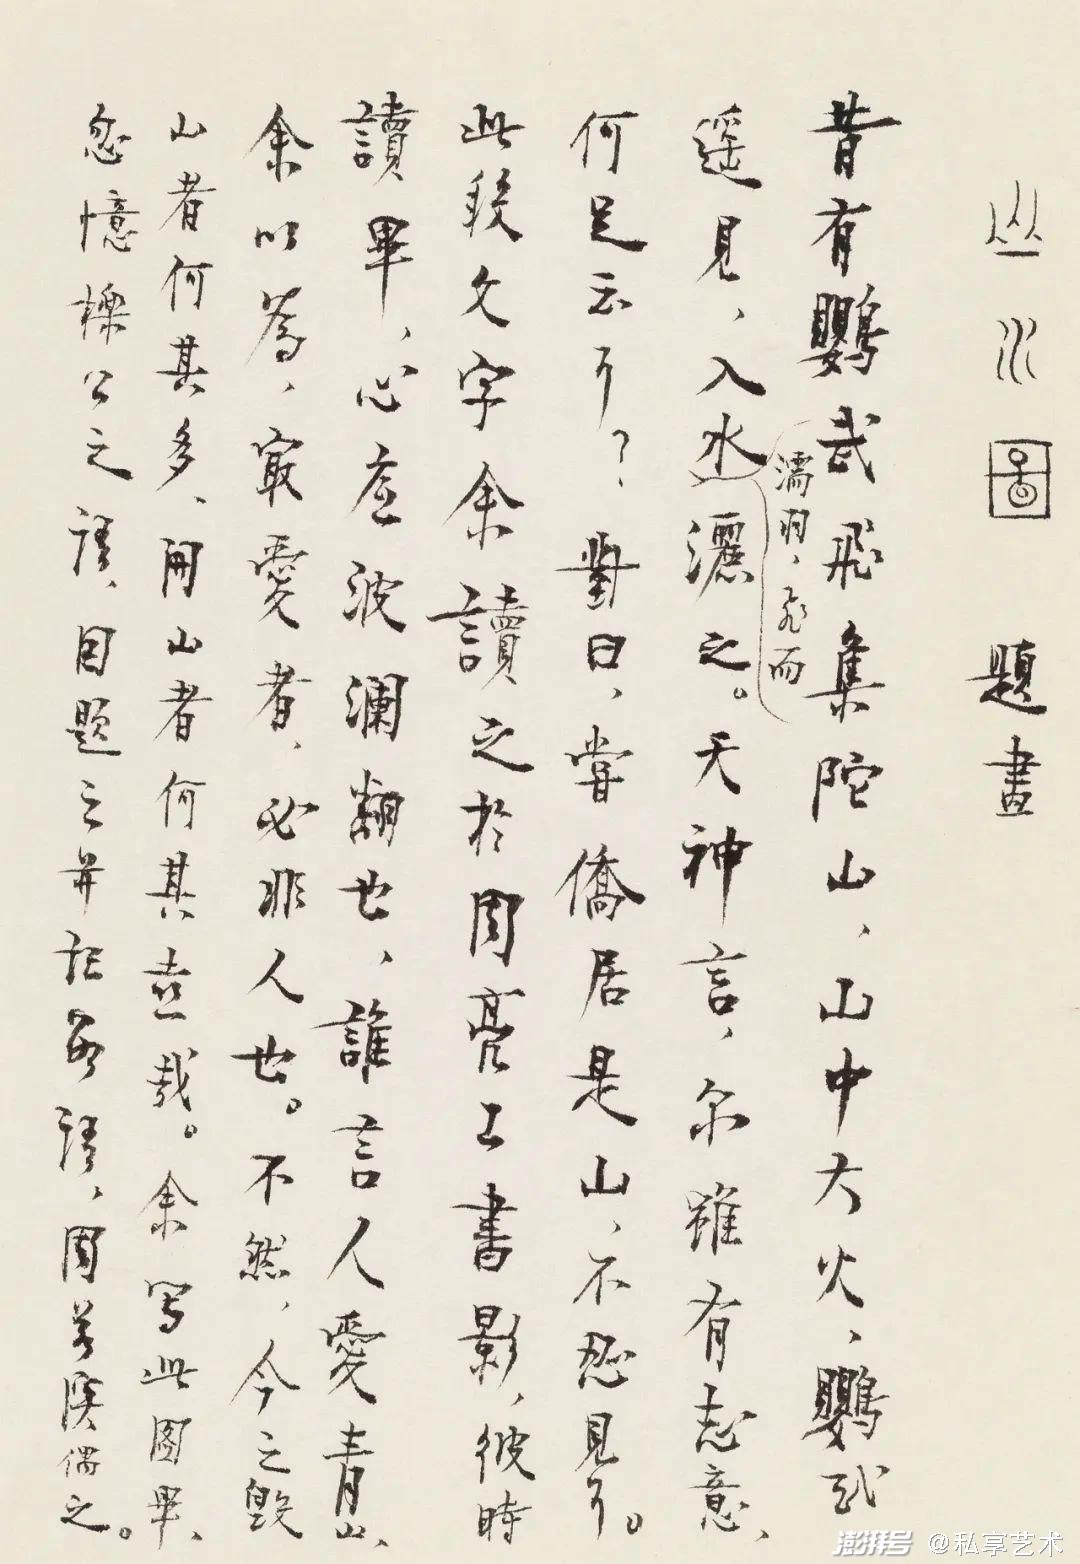 山水圖 題畫
昔有鸚武飛集陀山、山中大火、鸚武
遥見、入水濡羽、飛而灑之。天神言、尔雖有志意、
何足云耳？對曰、嘗僑居是山、不忍見耳。
此段文字余讀之於周亮工書影、彼時
讀畢、心底波瀾翻也、誰言人愛青山、
余以為、最愛者、必非人也。不然、今之毀
山者何其多、開山者何其 哉。余寫此圖畢、
忽憶櫟公之 、因題之并記 、周 之。
澎湃号 @私享艺术